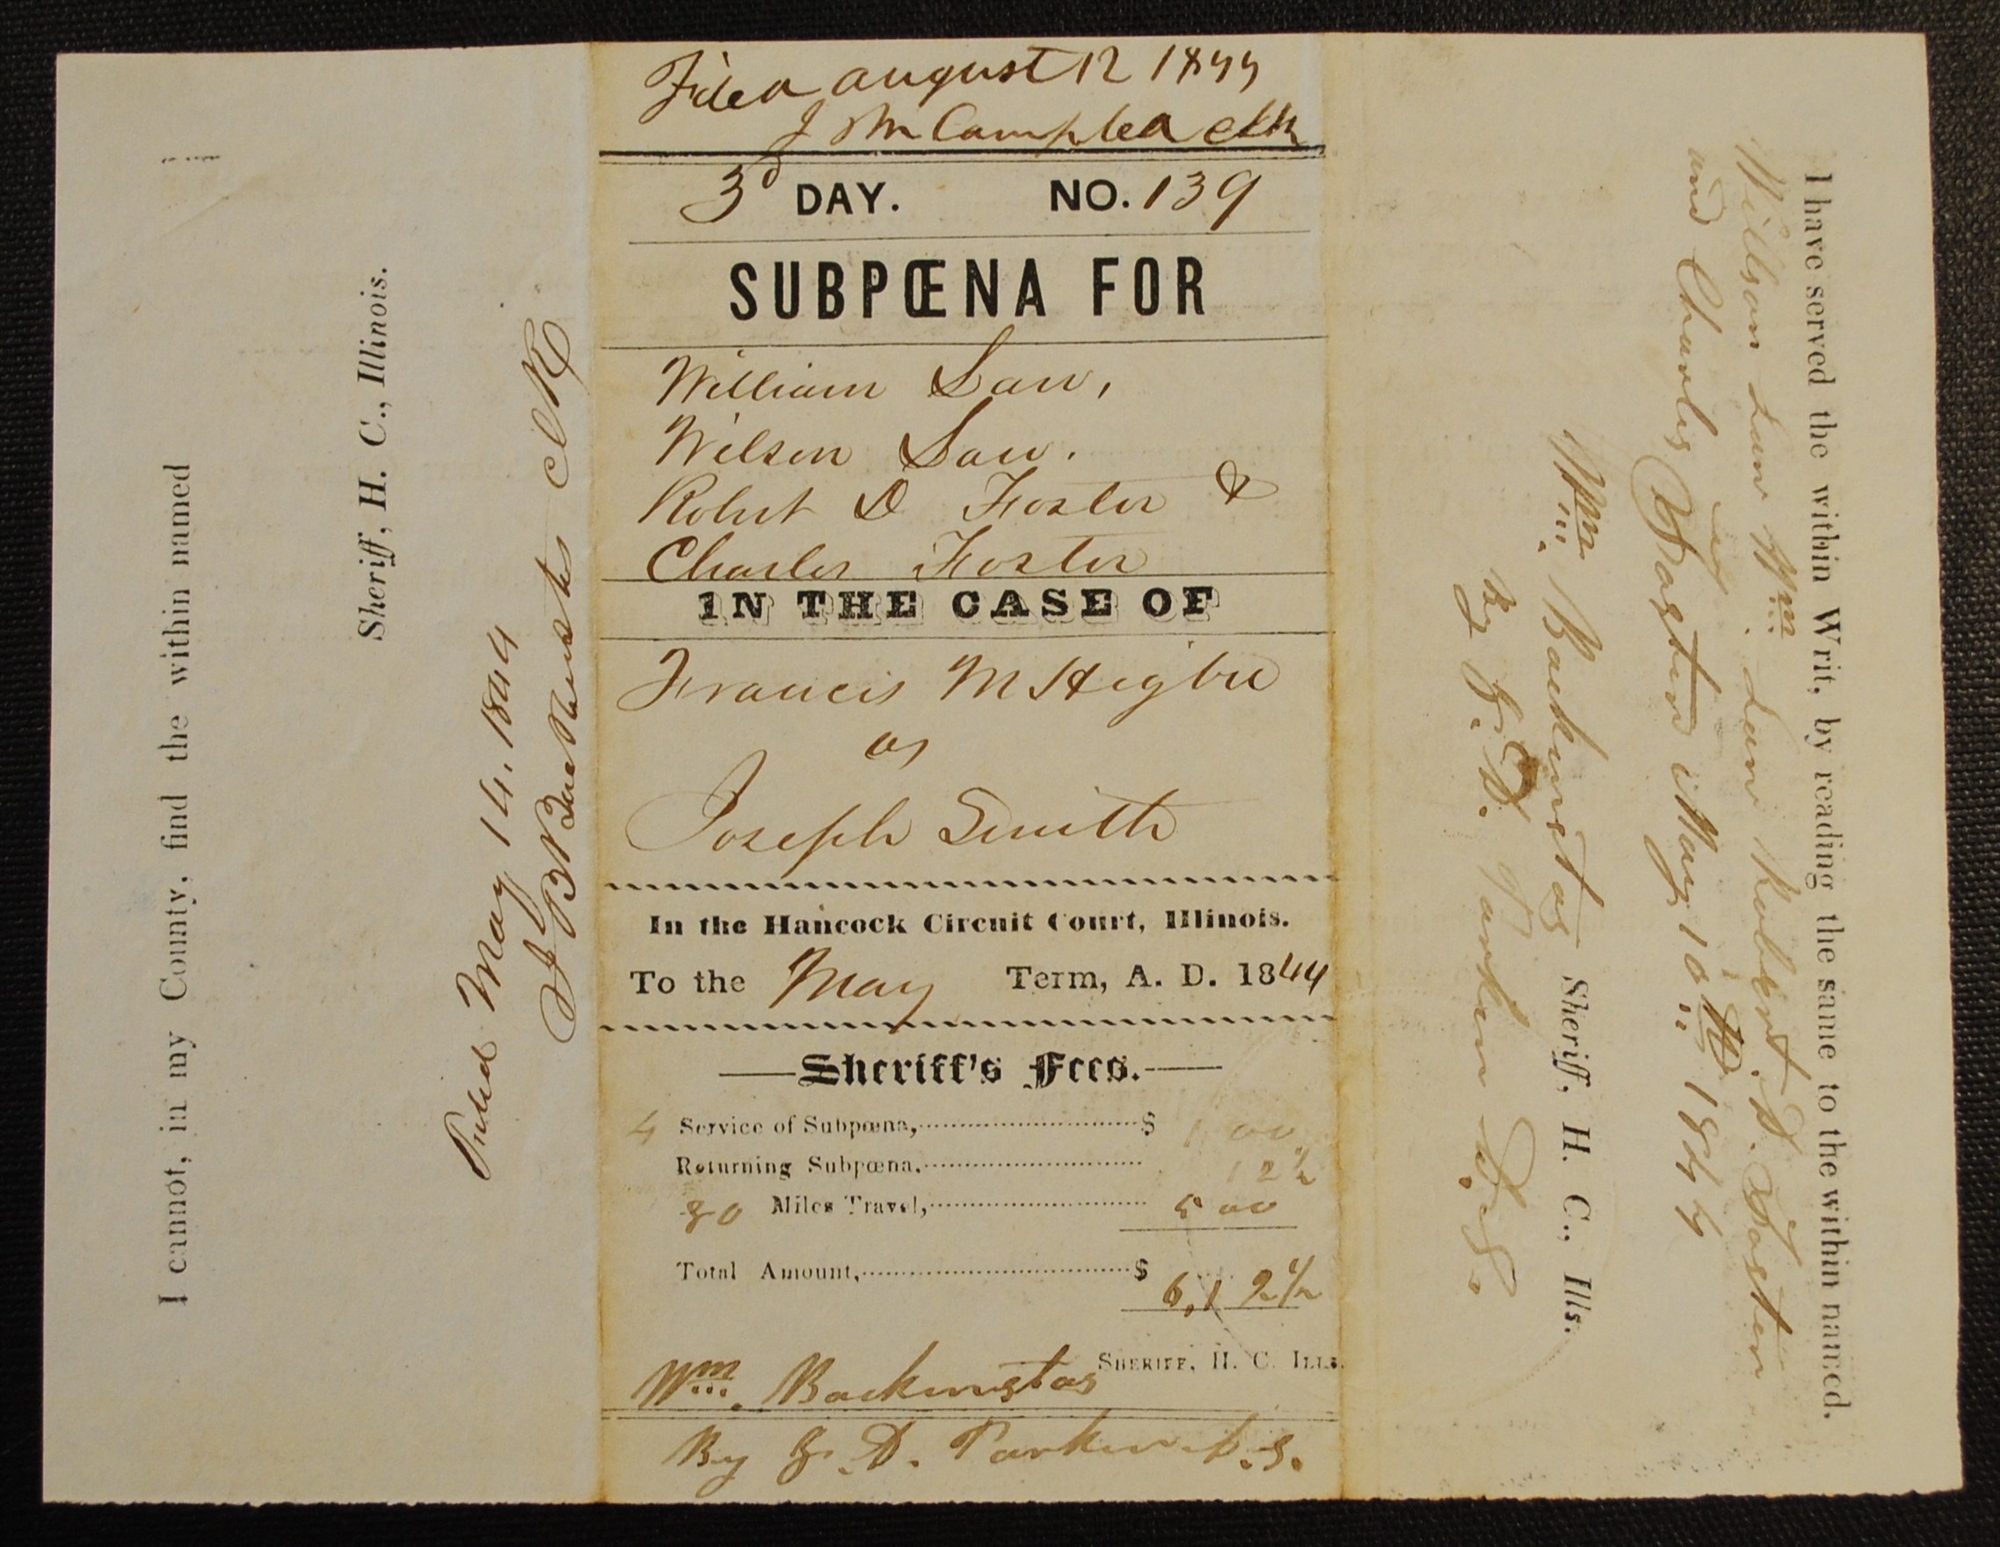 I cannot, in my County, find the within named
Sheriff, H. C., Illinois.
May 14. 1844
J B Backenstos clk
Filed august 12 1844
J M Campbell clk
3d DAY. NO. 139
SUBPŒNA FOR
William Law,
Wilson Law.
Robert D Foster &
Charles Foster
IN THE CASE OF
Francis M Higbee
vs
Joseph Smith
In the Hancock Circuit Court, Illinois.
To the May Term, A. D. 1844
Sheriff's Fees.
4 Service of Subpœna, $ 1 00
Returning Subpœna. 12½
80 Miles Travel, 5 00
Total Amount, $ 6,12½
SHERIFF, H. C. ILLS.
Wm. Backenstos
By J. D. Parker D.S.
I have served the within Writ, by reading the same to the within named.
Willson Law Wm. Law Robert. D. Foster
and Charles Foster May 10th 1844
Wm. Backenstos Sheriff, H. C., Ills.
By J. D. Parker D.S.